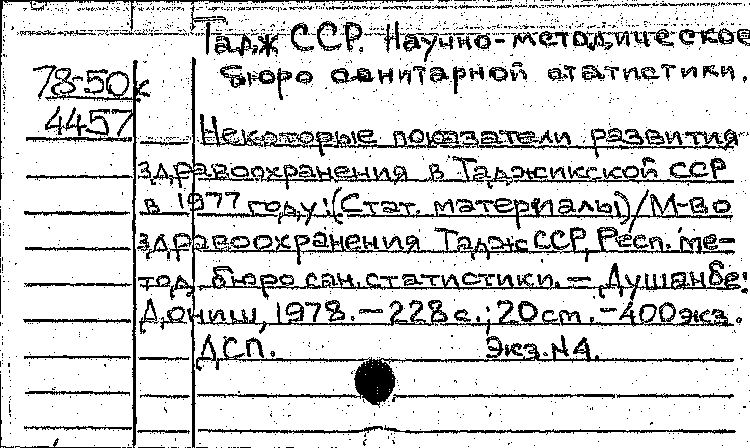 Тадж ССР. Научно-методическое
бюро санитарной статистики.
78-50к
4457
Некоторые показатели развития
здравоохранения в Таджикской ССР
в 1977 году: (Стат. материалы) / М-во
здравоохранения Тадж ССР, Респ. ме-
тод. бюро сан. статистики. — Душанбе:
Дониш, 1978. — 228 с.; 20 см. — 400 экз.
ДСП. Экз. N 4.